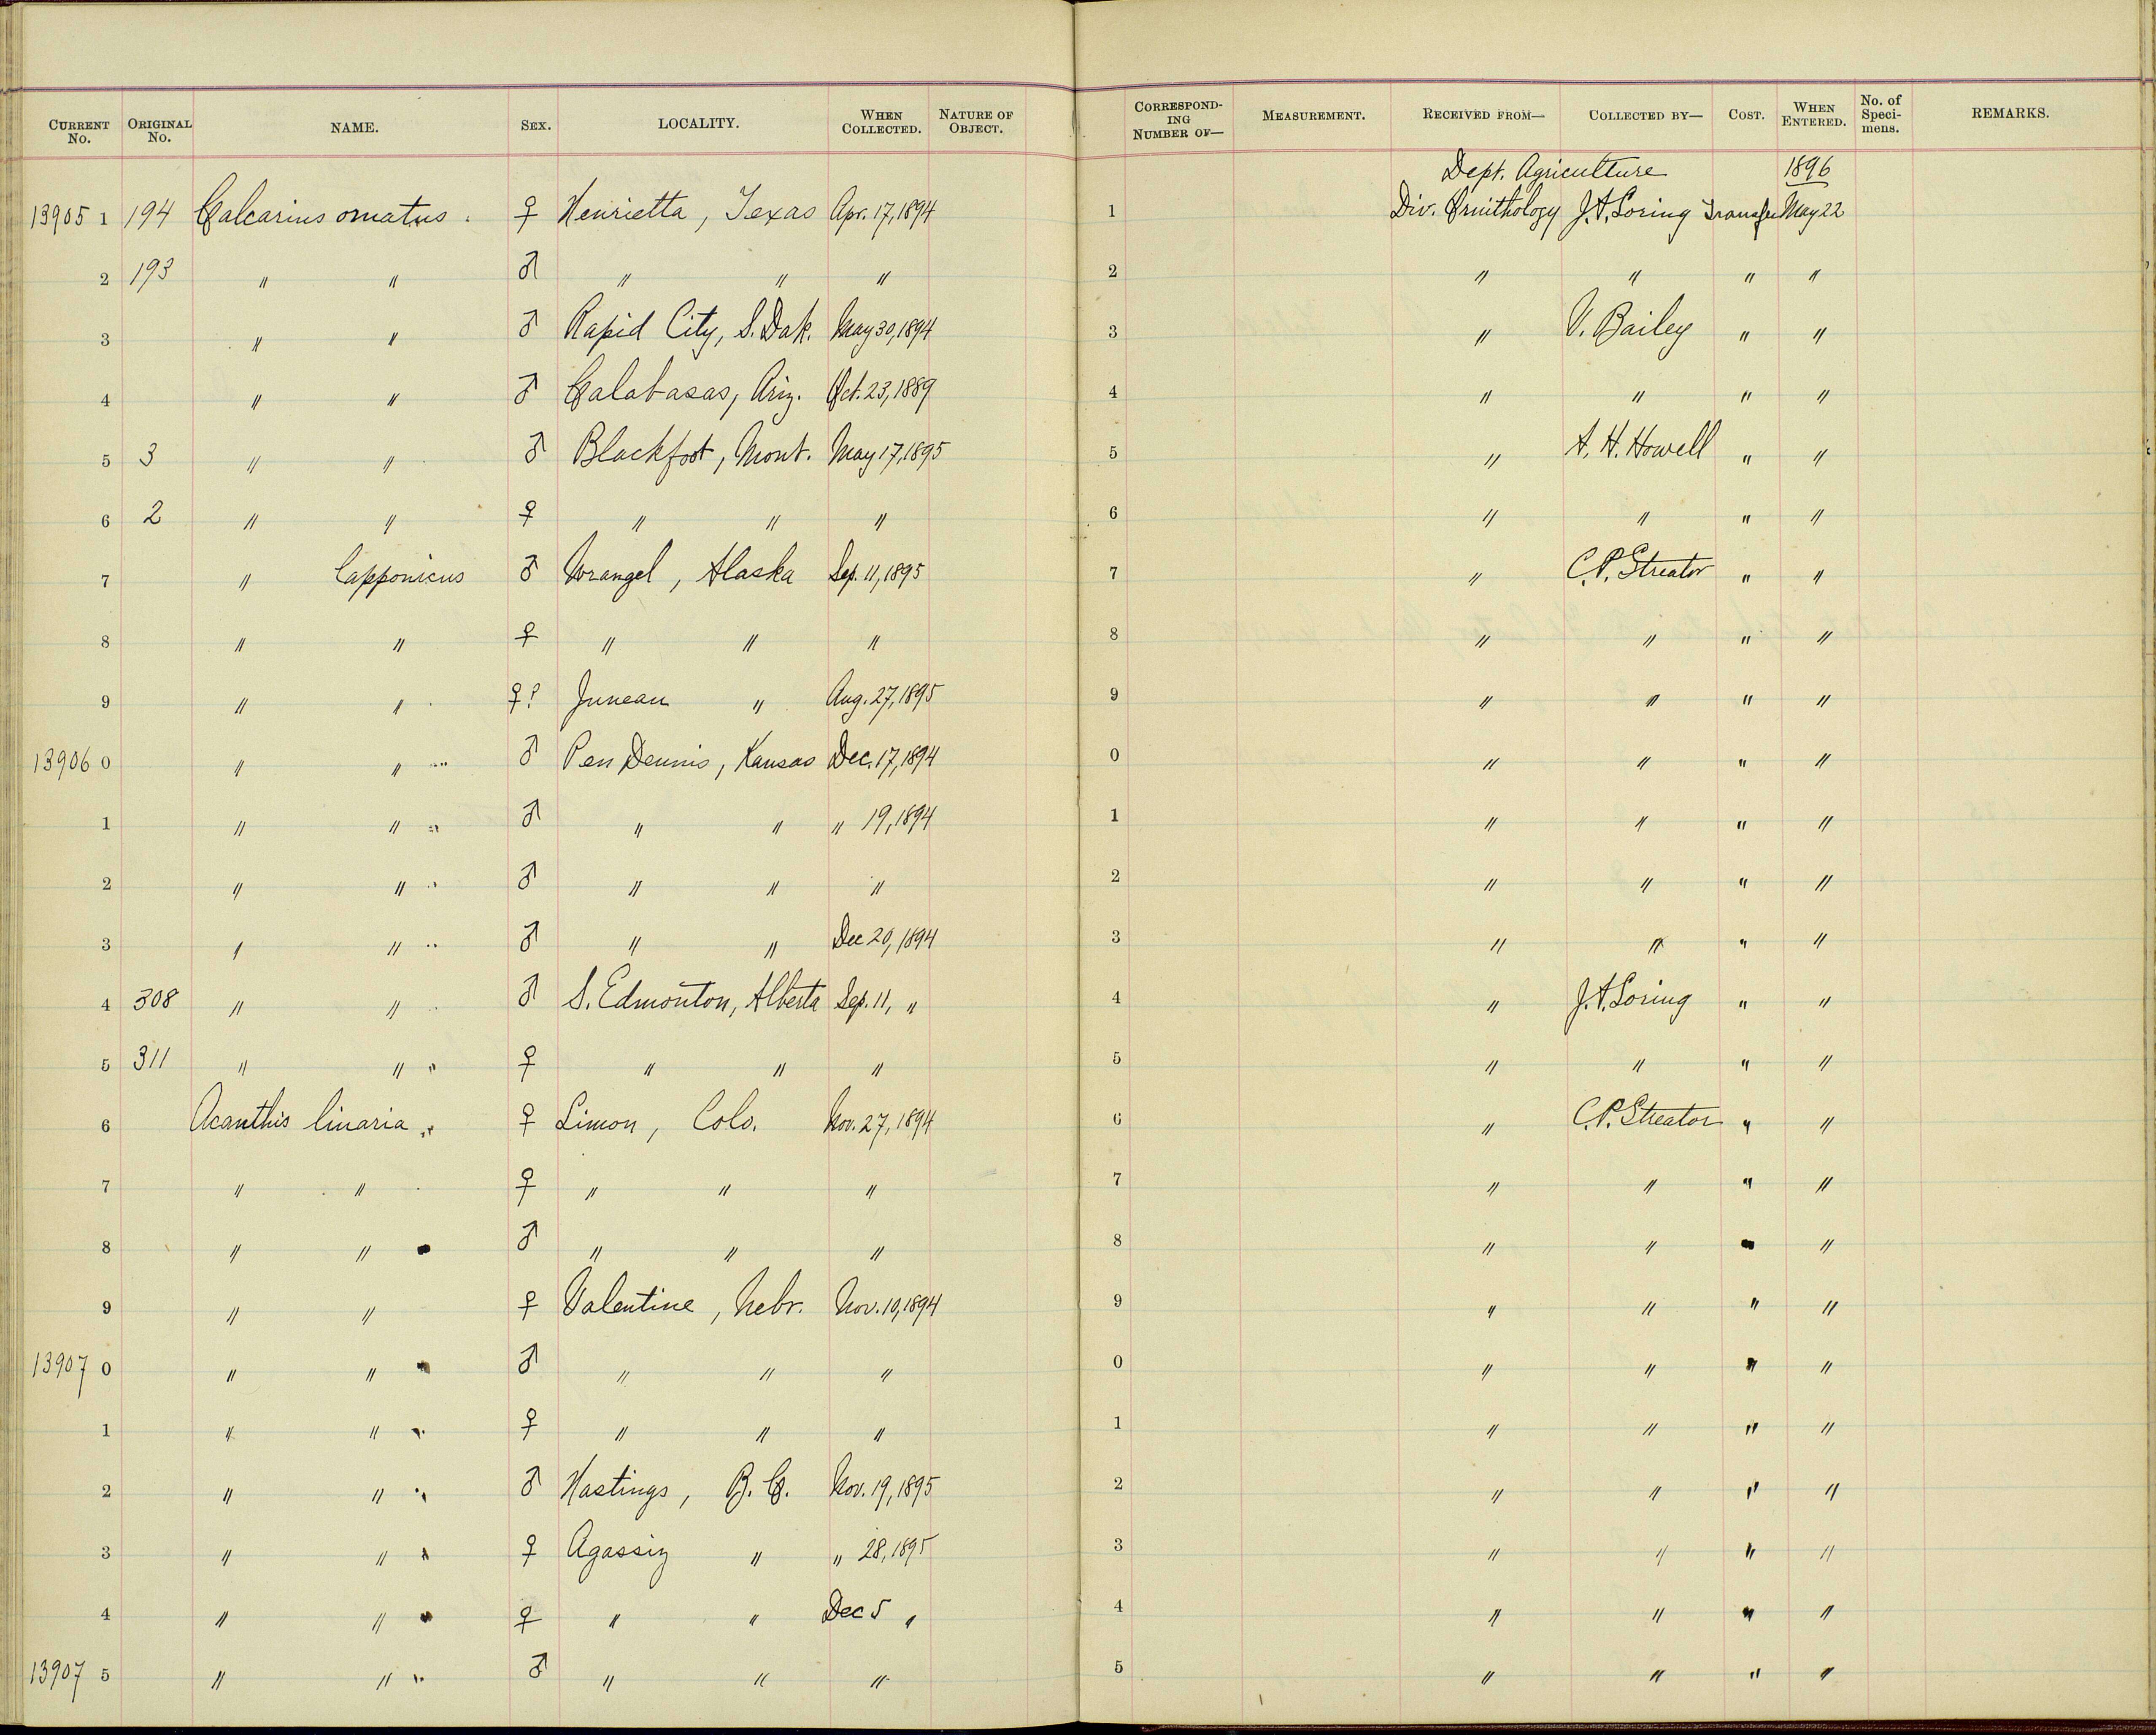 CURRENT No. ORIGINAL No. NAME. SEX. LOCALITY. WHEN COLLECTED. NATURE OF OBJECT. CORRESPONDING NUMBER OF— MEASUREMENT. RECEIVED FROM— COLLECTED BY— COST. WHEN ENTERED. No. of Specimens. REMARKS.
Dept. Agriculture 1896
13905 1 194 Calcarius ornatus. ♀ Henrietta, Texas Apr. 17, 1894 1 Div. Ornithology J.A. Loring Transfer May 22
2 193 " " ♂ " " " 2 " " " "
3 " " ♂ Rapid City, S. Dak. May 30, 1894 3 " V. Bailey " "
4 " " ♂ Calabasas, Ariz. Oct. 23, 1889 4 " " " "
5 3 " " ♂ Blackfoot, Mont. May 17, 1895 5 " A. H. Howell " "
6 2 " " ♀ " " " 6 " " " "
7 " lapponicus ♂ Wrangel, Alaska Sep. 11, 1895 7 " C.P. Streator " "
8 " " ♀ " " " 8 " " " "
9 " " ♀? Juneau " Aug. 27, 1895 9 " " " "
13906 0 " " ♂ Pen Dennis, Kansas Dec. 17, 1894 0 " " " "
1 " " ♂ " " " 19, 1894 1 " " " "
2 " " ♂ " " " 2 " " " "
3 " " ♂ " " Dec 20, 1894 3 " " " "
4 308 " " ♂ S. Edmonton, Alberta Sep. 11, " 4 " J.A. Loring " "
5 311 " " ♀ " " " 5 " " " "
6 Acanthis linaria ♀ Limon, Colo. Nov. 27, 1894 6 " C.P. Streator " "
7 " " ♀ " " " 7 " " " "
8 " " ♂ " " " 8 " " " "
9 " " ♀ Valentine, Nebr. Nov. 10, 1894 9 " " " "
13907 0 " " ♂ " " " 0 " " " "
1 " " ♀ " " " 1 " " " "
2 " " ♂ Hastings, B. C. Nov. 19, 1895 2 " " " "
3 " " ♀ Agassiz " " 28, 1895 3 " " " "
4 " " ♀ " " Dec 5 " 4 " " " "
13907 5 " " ♂ " " " 5 " " " "